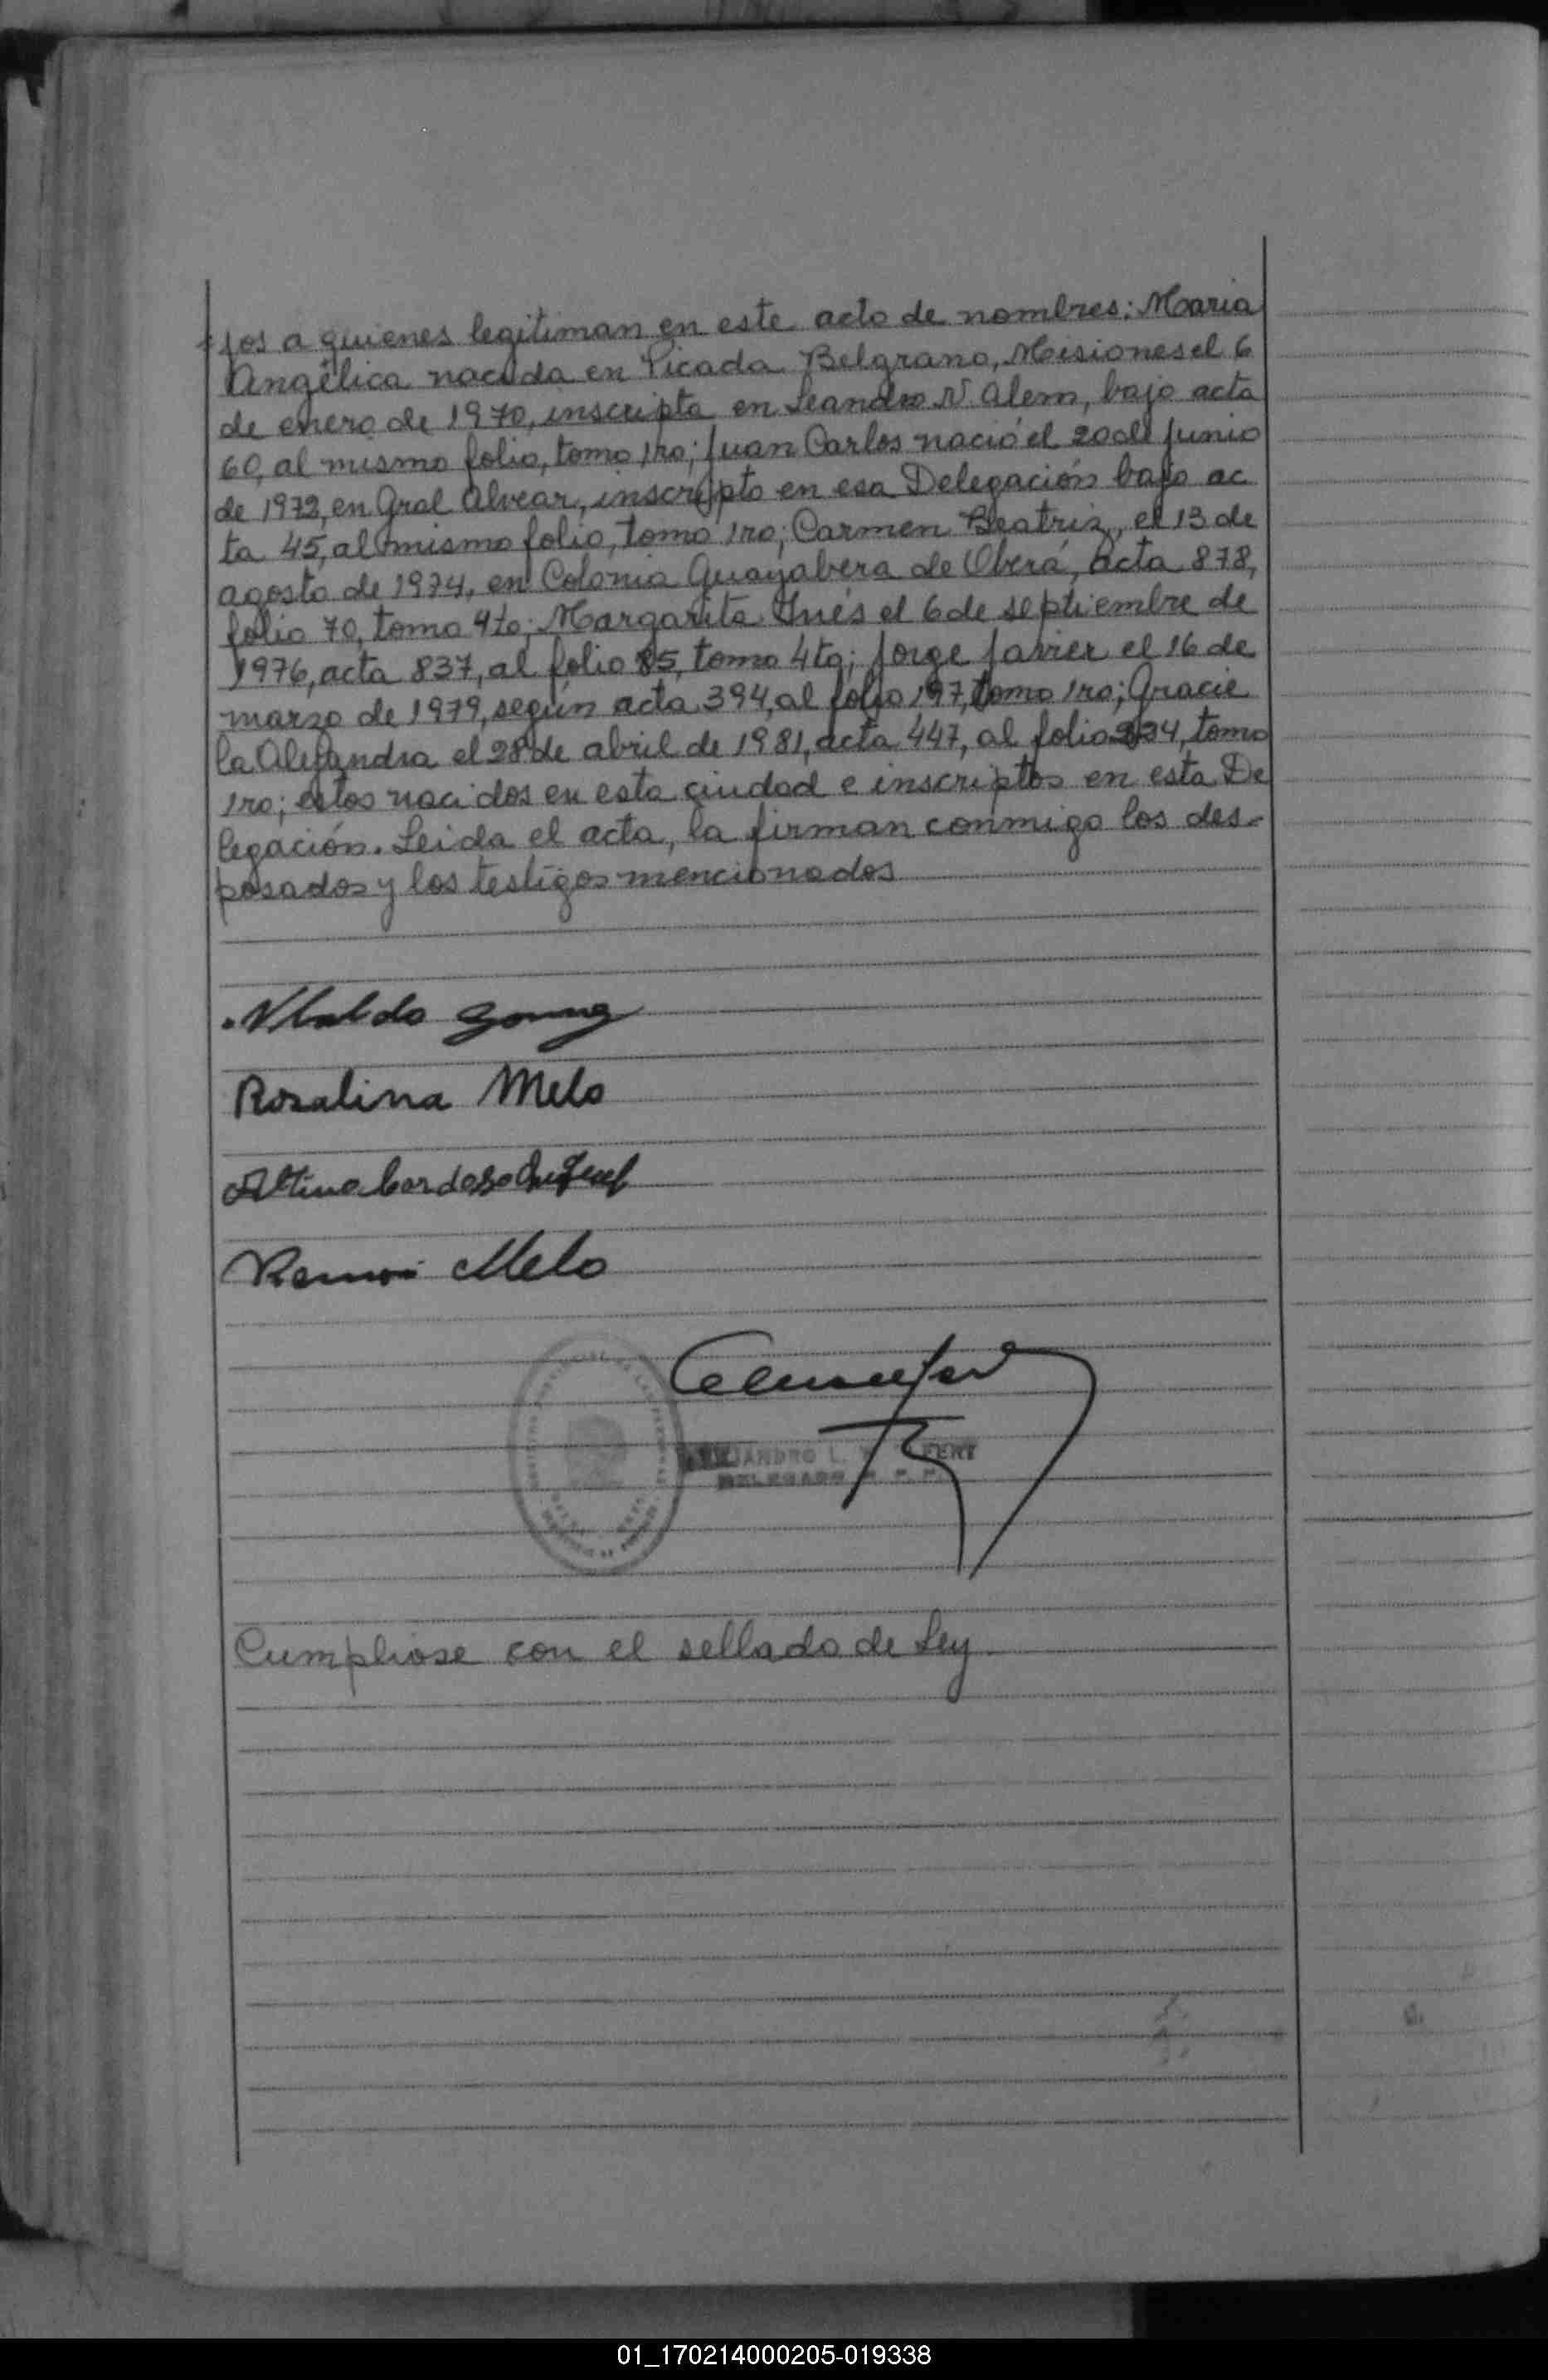 jos a quienes legitiman en este acto de nombres: Maria
Angélica nacida en Picada Belgrano, Misiones el 6
de enero de 1970, inscripta en Leandro N. Alem, bajo acta
60, al mismo folio, tomo 1ro; Juan Carlos nació el 20 de Junio
de 1972, en Gral Alvear, inscripto en esa Delegación bajo ac
ta 45, al mismo folio, tomo 1ro; Carmen Beatriz, el 13 de
agosto de 1974, en Colonia Guayabera de Oberá, acta 878,
folio 70, tomo 4to; Margarita Inés el 6 de septiembre de
1976, acta 837, al folio 85, tomo 4to; Jorge Javier el 16 de
marzo de 1979, según acta 394, al folio 197, tomo 1ro; Gracie
la Alejandra el 28 de abril de 1981, acta 447, al folio 224, tomo
1ro; estos nacidos en esta ciudad e inscriptos en esta De
legación. Leida el acta, la firman conmigo los des-
posados y los testigos mencionados
Rosalina Melo
Cardozo
Melo
JANDRO L.
DELEGADO
Cumpliose con el sellado de Ley.
01_170214000205-019338